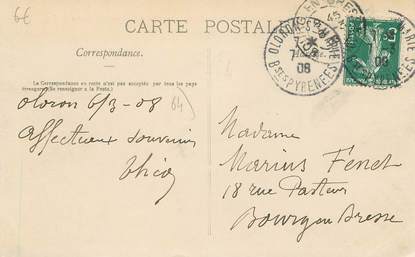 6€
CARTE POSTALE
Correspondance.
La Correspondance au recto n'est pas acceptée par tous les pays
étrangers (Se renseigner à la Poste.)
64)
Oloron 6/3-08
Affectueux souvenirs
OLORON-Ste-MARIE
7-3
08
Bses PYRENEES
Madame
Marius Ferret
18 rue Pasteur
Bourg en Bresse